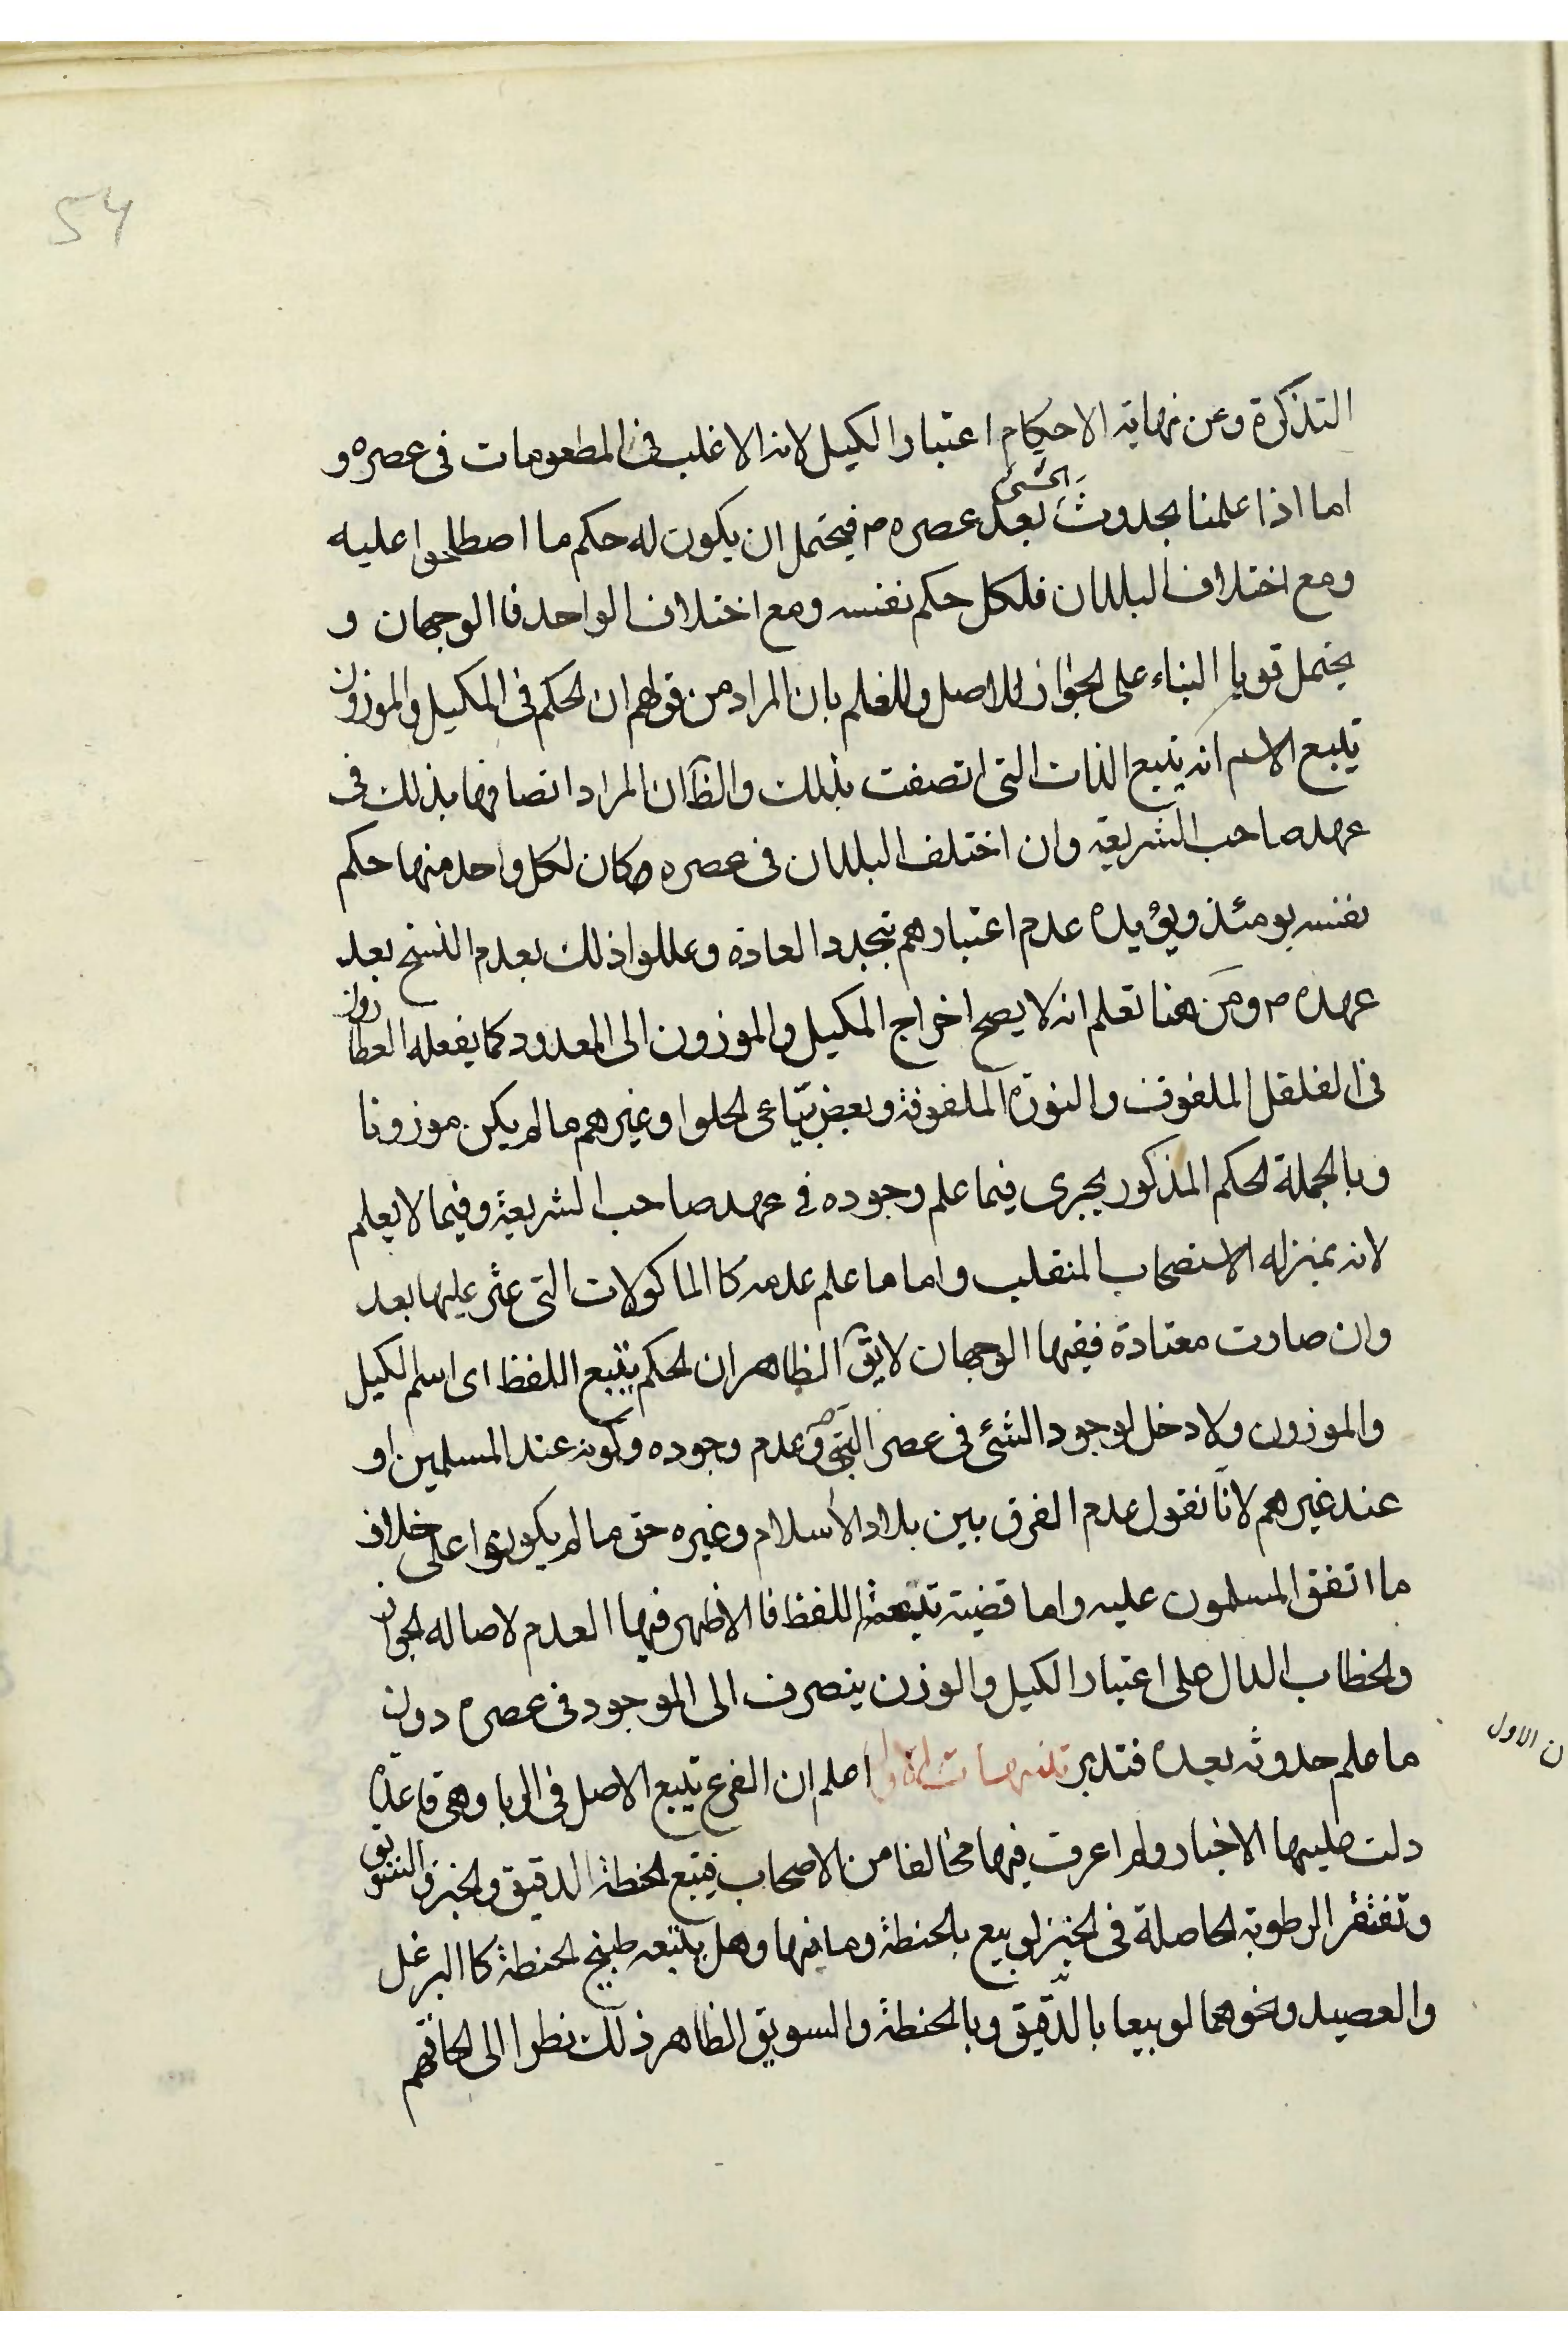 54
التذكرة وعن نهاية الاحكام اعتبار الكيل لانه الاغلب فى المطعومات فى عصره و
الشئ
اما اذا علمنا بحدوث بعد عصره م فيحتمل ان يكون له حكم ما اصطلحوا عليه
ومع اختلاف البلدان فلكل حكم نفسه ومع اختلاف الواحد فا الوجهان و
يحتمل قويا البناء على الجواز للاصل وللعلم بان المراد من قولهم ان الحكم فى المكيل والموزون
يتبع الاسم انه يتبع الذات التى اتصفت بذلك والظ ان المراد اتصافها بذلك فى
عهد صاحب الشريعة وان اختلف البلدان فى عصره وكان لكل واحد منها حكم
نفسه يومئذ ويؤيده عدم اعتبارهم تجدد العادة وعللوا ذلك بعدم النسخ بعد
عهده م ومن هنا تعلم انه لا يصح اخراج المكيل والموزون الى المعدود كما يفعله العطارون
فى الفلفل الملفوف والنورة الملفوفة وبعض بياعى الحلوا وغيرهم ما لم يكن موزونا
وبالجملة الحكم المذكور يجرى فيما علم وجوده فى عهد صاحب الشريعة وفيما لا يعلم
لانه بمنزله الاستصحاب المنقلب واما ما علم عدمه كا الماكولات التى عثر عليها بعد
وان صارت معتادة ففيها الوجهان لا يق الظاهر ان الحكم يتبع اللفظ اى اسم الكيل
والموزون ولا دخل لوجود الشئ فى عصر النبى ص وعدم وجوده وكونه عند المسلمين او
عند غيرهم لانا نقول عدم الفرق بين بلاد الاسلام وغيره حق ما لم يكونوا على خلاف
ما اتفق المسلمون عليه واما قضية تبعية اللفظ فا الاظهر فيها العدم لاصاله الجواز
والخطاب الدال على اعتبار الكيل والوزن ينصرف الى الموجود فى عصره دون
ما علم حدوثه بعده فتدبر تنبيهات الاول اعلم ان الفرع يتبع الاصل فى الربا وهى قاعدة
ن الاول
دلت عليها الاخبار ولم اعرف فيها مخالفا من الاصحاب فيتبع الحنطة الدقيق والخبز والسويق
وتغتفر الرطوبة الحاصلة فى الخبز لو بيع بالحنطة وما فيها وهل يتبعه طبيخ الحنطة كا البرغل
والعصيد ونحوهما لو بيعا بالدقيق وبالحنطة والسويق الظاهر ذلك نظرا الى الحاقهم